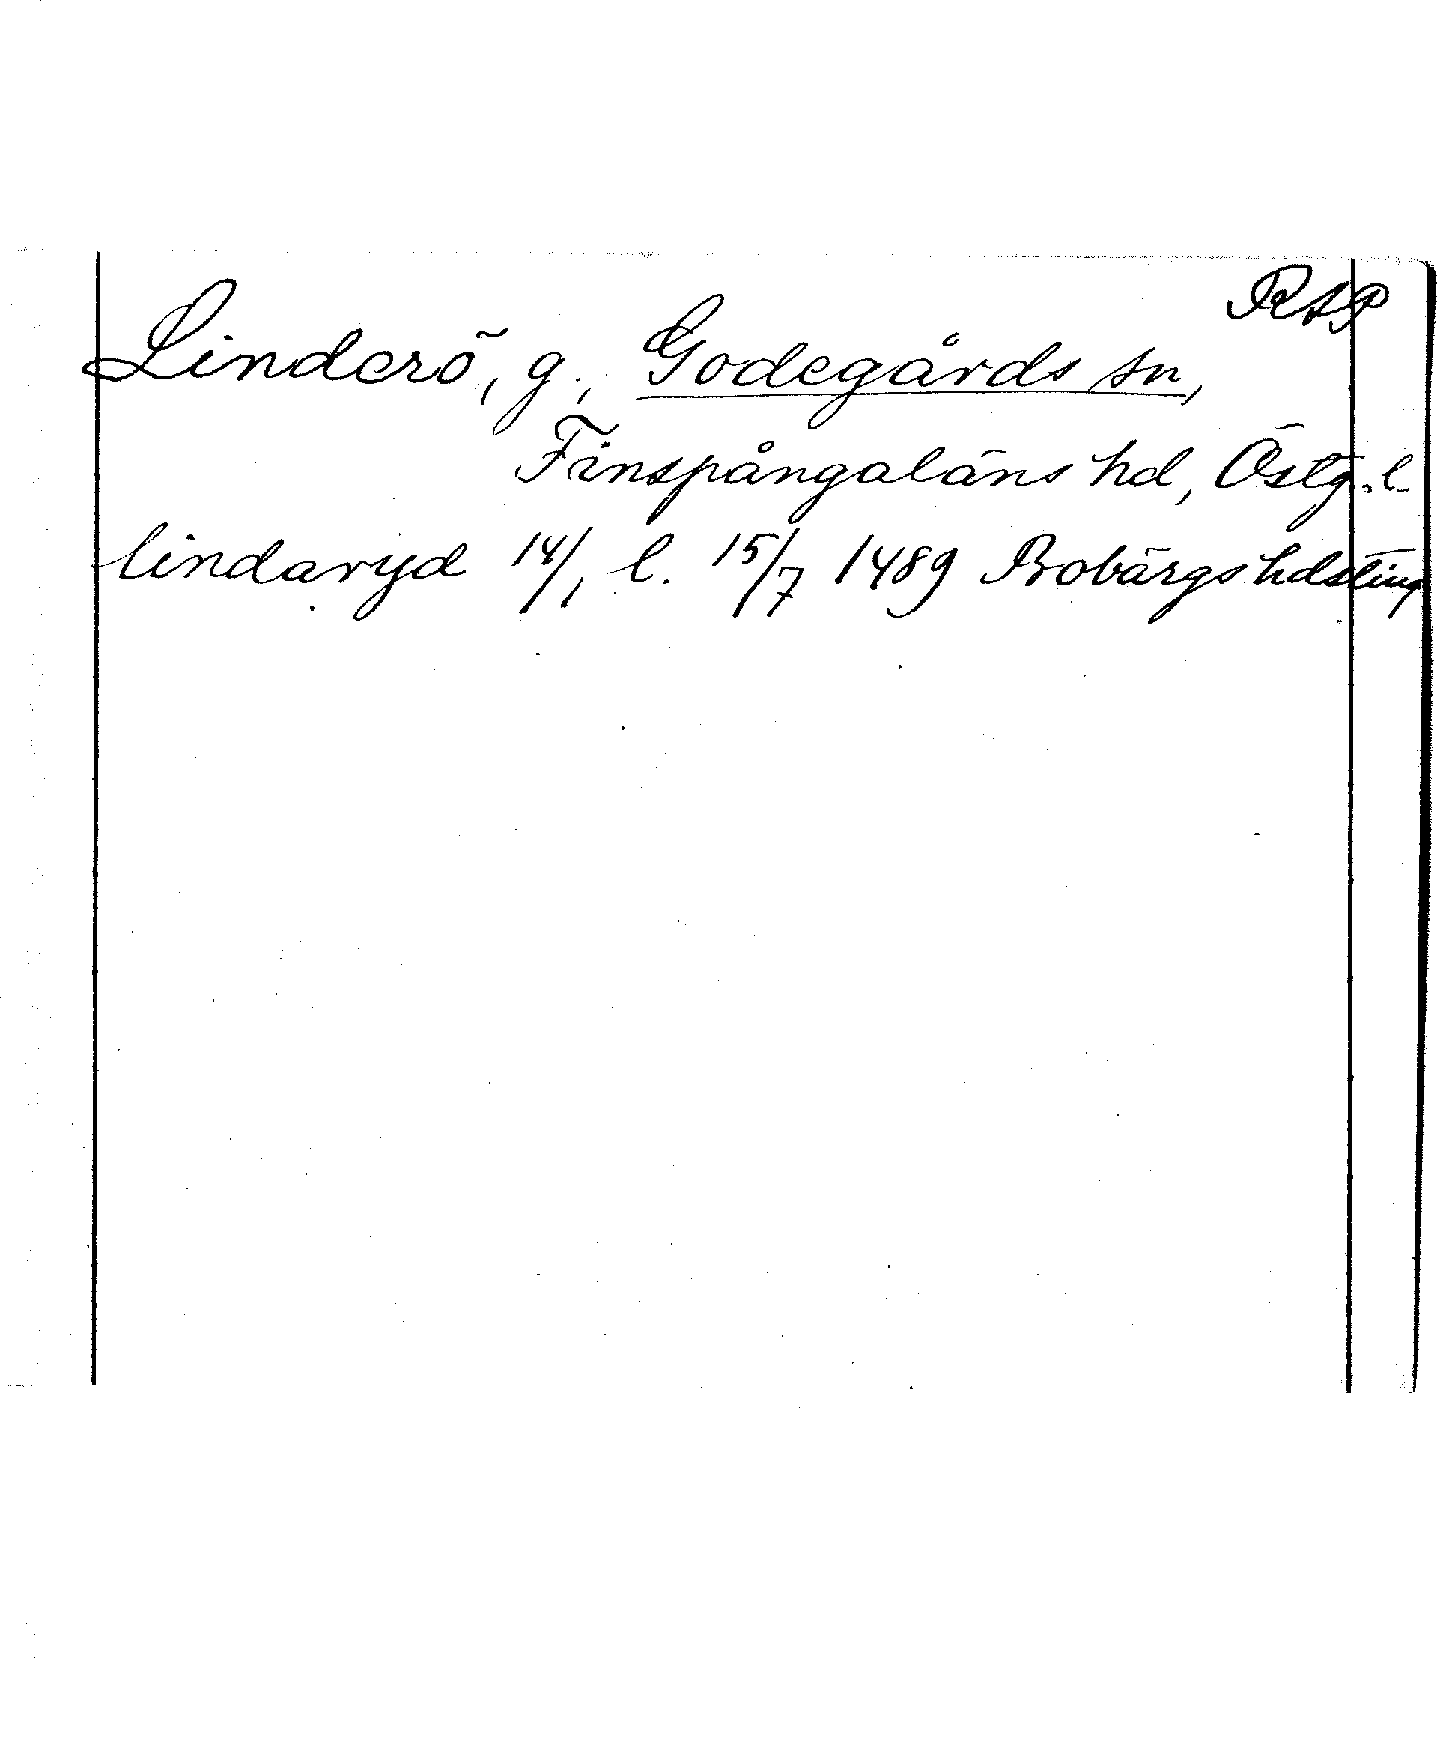 RAP
Linderö, g., Godegårds sn,
Finspångaläns hd, Östg. l.
lindaryd 14/1 l. 15/7 1489 Bobärgs hdsting